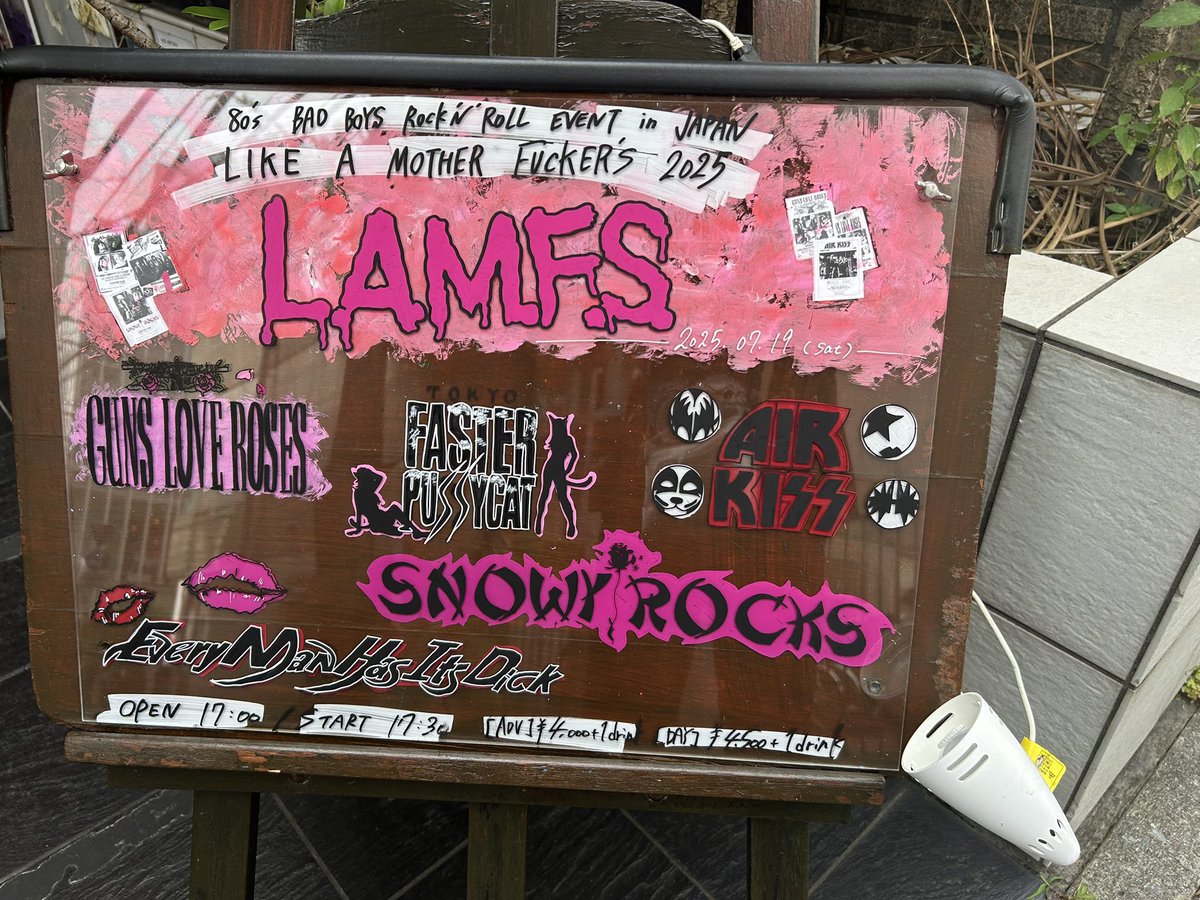 80's BAD BOYS Rock'N'Roll EVENT in JAPAN
LIKE A MOTHER FUCKER'S 2025
L.A.M.F.S
2025 07.19 (sat)
GUNS LOVE ROSES
TOKYO
FASTER
PUSSYCAT
AIR
KISS
SNOWY ROCKS
Every Man Has Its Dick
OPEN 17:00 / START 17:30 [ADV] ¥4.000+1drin [DAY] ¥4.500+1drink
AIR KISS